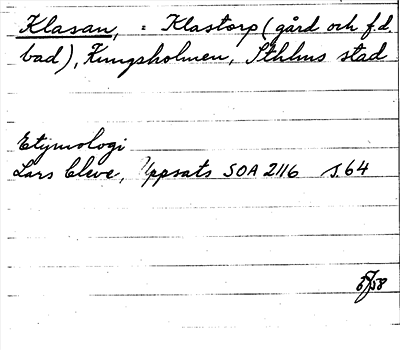 Klasan, = Klastorp (gård och f.d.
bad), Kungsholmen, Sthlms stad
Etymologi
Lars Cleve, Uppsats SOA 2116 s. 64